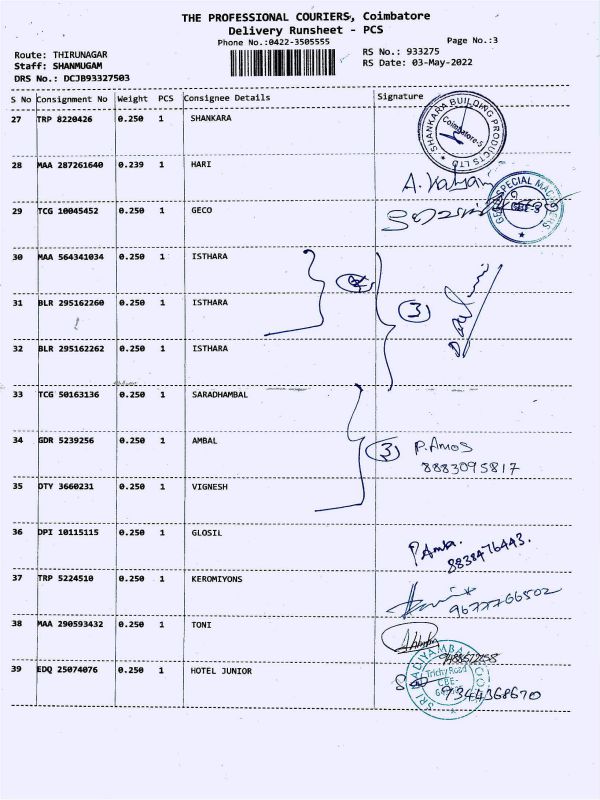 THE PROFESSIONAL COURIERS, Coimbatore
Delivery Runsheet - PCS
Phone No.:0422-3505555
Page No.:3
Route: THIRUNAGAR
RS No.: 933275
Staff: SHANMUGAM
RS Date: 03-May-2022
DRS No.: DCJB93327503
S No Consignment No Weight PCS Consignee Details Signature
27 TRP 8220426 0.250 1 SHANKARA
SHANKARA BUILDING PRODUCTS LTD
Coimbatore-5
28 MAA 287261640 0.239 1 HARI
29 TCG 10045452 0.250 1 GECO
30 MAA 564341034 0.250 1 ISTHARA
31 BLR 295162260 0.250 1 ISTHARA
3
32 BLR 295162262 0.250 1 ISTHARA
33 TCG 50163136 0.250 1 SARADHAMBAL
34 GDR 5239256 0.250 1 AMBAL
3 P. Amos
8883095817
35 DTY 3660231 0.250 1 VIGNESH
36 DPI 10115115 0.250 1 GLOSIL
8838476443.
37 TRP 5224510 0.250 1 KEROMIYONS
9677766502
38 MAA 290593432 0.250 1 TONI
39 EDQ 25074076 0.250 1 HOTEL JUNIOR
Trichy Road
CBE-
9344368670